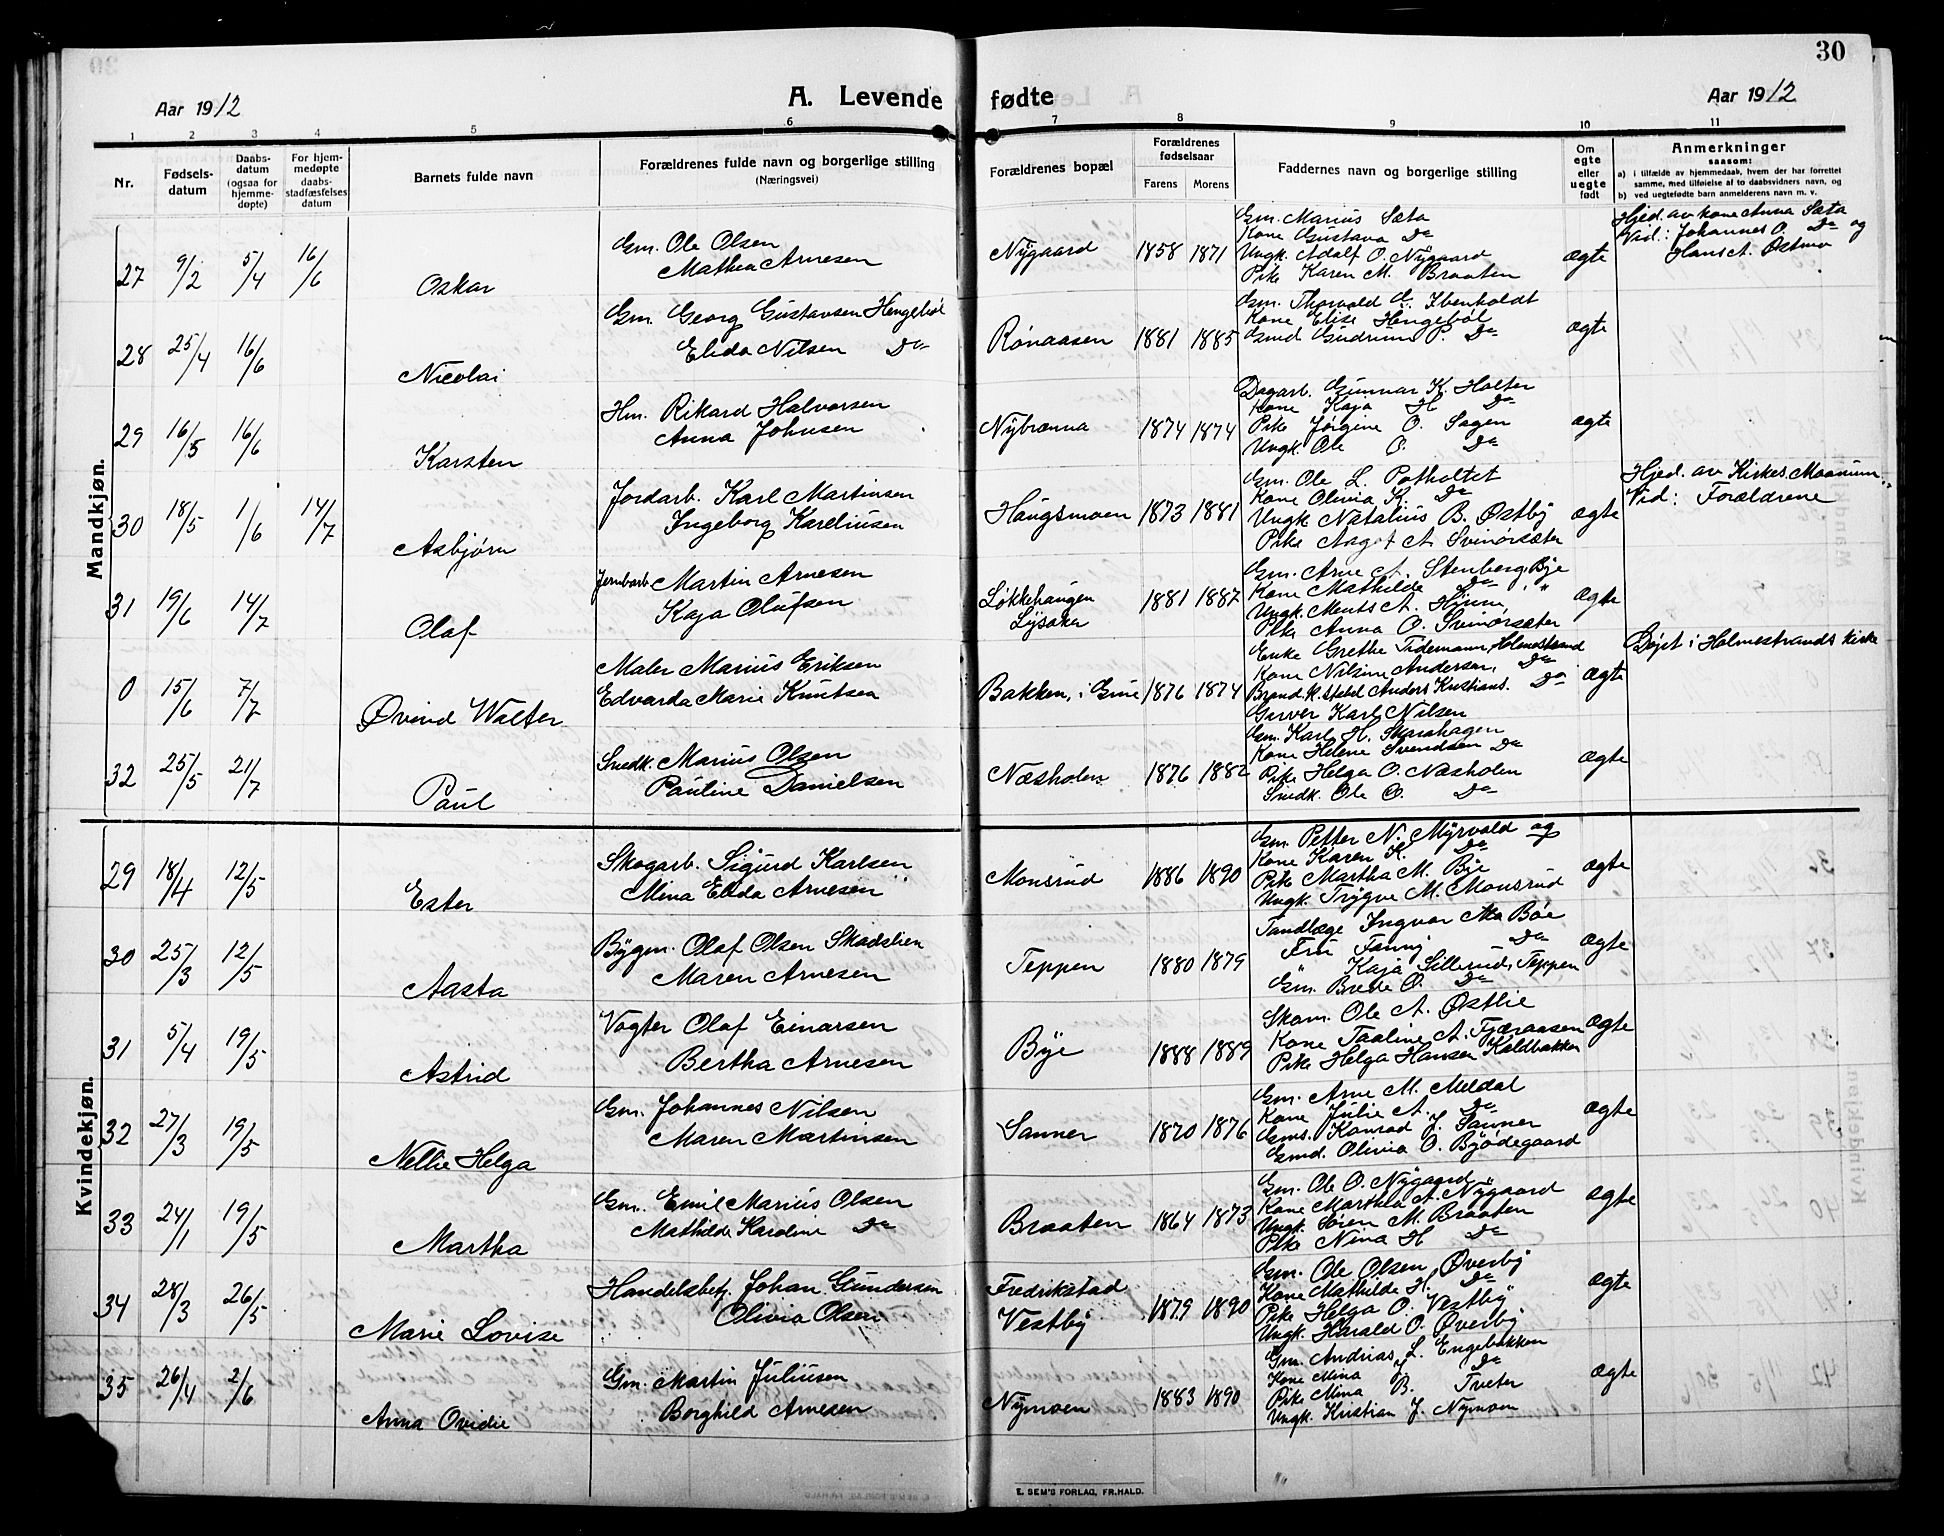 30
Aar 1912
A. Levende fødte
Aar 1912
1 2 3 4 5 6 7 8 9 10 11
Nr.
Fødsels-
datum
Daabs-
datum
(ogsaa for
hjemme-
døpte)
For hjem-
medøpte
daabs-
stadfæstelses
datum
Barnets fulde navn
Forældrenes fulde navn og borgerlige stilling
(Næringsvei)
Forældrenes bopæl
Forældrenes
fødselsaar
Farens Morens
Faddernes navn og borgerlige stilling
Om
egte
eller
uegte
født
Anmerkninger
saasom:
a) i tilfælde av hjemmedaab, hvem der har forrettet
samme, med tilføielse af to daabsvidners navn, og
b) ved uegtefødte barn anmelderens navn m. v.
Mandkjøn.
27 9/2 5/4 16/6 Oskar
Gm. Ole Olsen
Mathea Arnesen
Nygaard 1858 1871
Gm. Marius Sæta
Kone Gustava Do
Ungk. Adolf O. Nygaard
Pike Karen M. Braaten
ægte
Hjed. av kone Anna Sæta
Vid.: Johannes O. Do og
Hans A. Østmo
28 25/4 16/6 Nicolai
Gm. Georg Gustavsen Hengebøl
Elida Nilsen Do
Rønaasen 1881 1885
Gm. Thorvald E. Ibenholdt
Kone Elise Hengebøl
Gmd. Gudrun P. Do
ægte
29 16/5 16/6 Karsten
Hm. Rikard Halvorsen
Anna Johnsen
Nybrenna 1874 1874
Dagarb. Gunnar K. Holter
Kone Kaja H Do
Pike Jørgine O. Sagen
Ungk. Ole O. Do
ægte
30 18/5 1/6 14/7 Asbjørn
Jordarb. Karl Martinsen
Ingeborg Kareliusen
Haugsmoen 1873 1881
Gm. Ole L. Potholtet
Kone Olivia K. Do
Ungk Natalius B. Østby
Pike Aagot A. Svinørsæter
ægte
Hjed. av Kirkes. Maanum.
Vid: Forældrene
31 19/6 14/7 Olaf
Jernbarb. Martin Arnesen
Kaja Olufsen
Løkkehaugen
Lysaker
1881 1887
Gm. Arne A. Stenberg Bye
Kone Mathilde Do "
Ungk. Ments A.
Pike Anna O. Svinørsæter
ægte
0 15/6 7/7 Øvind Walter
Maler Marius Eriksen
Edvarda Marie Knutsen
Bakken, i Grue 1876 1874
Enke Grethe Tidemann, Holmestrand
Kone Nilsine Andersen, Do
Brandk.stabel Anders Kristians. Do
Garver Karl Nilsen
ægte
Døpt i Holmestrands kirke
32 25/5 21/7 Paul
Snedk. Marius Olsen
Pauline Danielsen
Næsholen 1876 1882
Gm. Karl H. Skarahagen
Kone Helene Svendsen Do
Pike Helga O. Næsholen
Snedk. Ole O. Do
ægte
Kvindekjøn.
29 18/4 12/5 Ester
Skogarb. Sigurd Karlsen
Mina Elida Arnesen
Monsrud 1886 1890
Gm Petter N. Myrvold og
Kone Karen K. Do
Pike Martha M. Bye
Ungk. Trygve M. Monsrud
ægte
30 25/3 12/5 Aasta
Bygm. Olaf Olsen Skadslien
Maren Arnesen
Teppen 1880 1879
Tandlæge Ingvar Bøe
Fru Fanny Do
Kaja Sillerud, Teppen
Gm. Brede O. Do
ægte
31 5/4 19/5 Astrid
Vogter Olaf Einarsen
Bertha Arnesen
Bye 1888 1889
Skom. Ole A. Østlie
Kone Taaline A. Fjæraasen
Pike Helga Hansen Kaldbakken
ægte
32 27/3 19/5 Nellie Helga
Gm. Johannes Nilsen
Maren Martinsen
Sanner 1870 1876
Gm. Arne M. Meldal
Kone Julie A. Do
Gms. Konrad J. Sanner
Gmd. Olivia O. Bjødegaard
ægte
33 24/1 19/5 Martha
Gm. Emil Marius Olsen
Mathilde Karoline Do
Braaten 1864 1873
Gm. Ole O. Nygaard
Kone Marthea A. Nygaard
Ungk. Søren M. Braaten
Pike Nina H Do
ægte
34 28/3 26/5 Marie Lovise
Handelsbetj. Johan Gundersen
Olivia Olsen
Fredrikstad
Vestby
1879 1890
Gm. Ole Olsen Øverby
Kone Mathilde H. Do
Pike Helga O. Vestby
Ungk. Harald O. Øverby
ægte
35 26/4 2/6 Anna Ovidie
Gm. Martin Juliusen
Borghild Arnesen
Nymoen 1883 1890
Gm. Andrias L. Engebakken
Kone Mina J. Do
Pike Mina B. Tveter
Ungk. Kristian J. Nymoen
ægte
E. SEM'S FORLAG, FR.HALD.